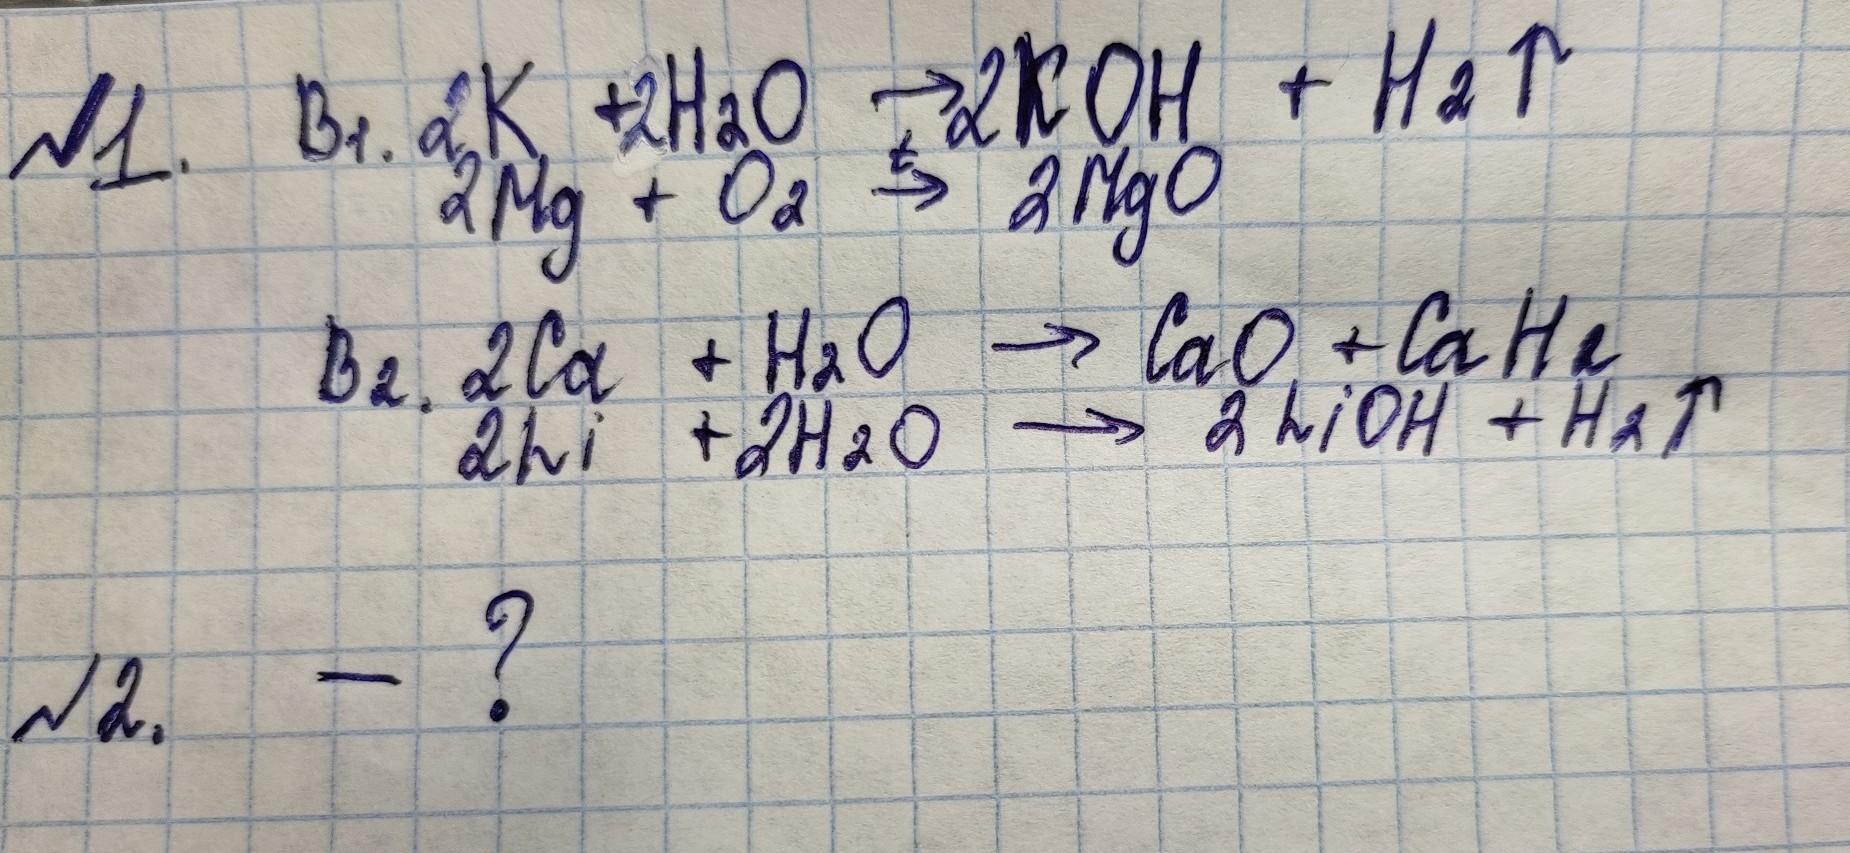 №1. В1. 2K + 2H2O → 2KOH + H2↑
2Mg + O2 t→ 2MgO
В2. 2Ca + H2O → CaO + CaH2
2Li + 2H2O → 2LiOH + H2↑
№2. — ?